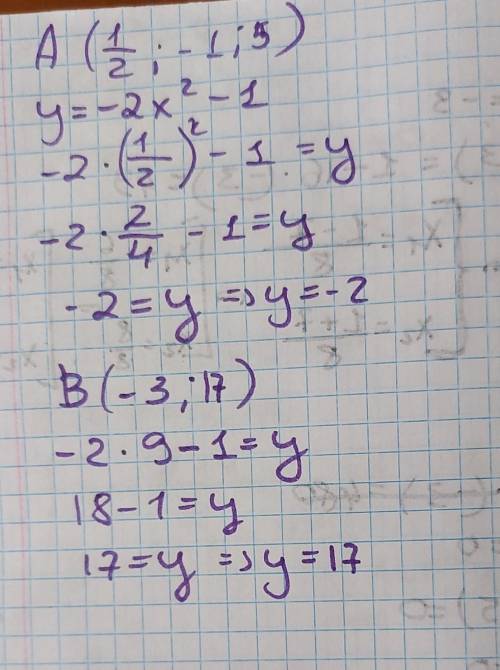 A (1/2 ; -1;5)
y = -2x² - 1
-2 · (1/2)² - 1 = y
-2 · 2/4 - 1 = y
-2 = y => y = -2
B (-3 ; 17)
-2 · 9 - 1 = y
18 - 1 = y
17 = y => y = 17